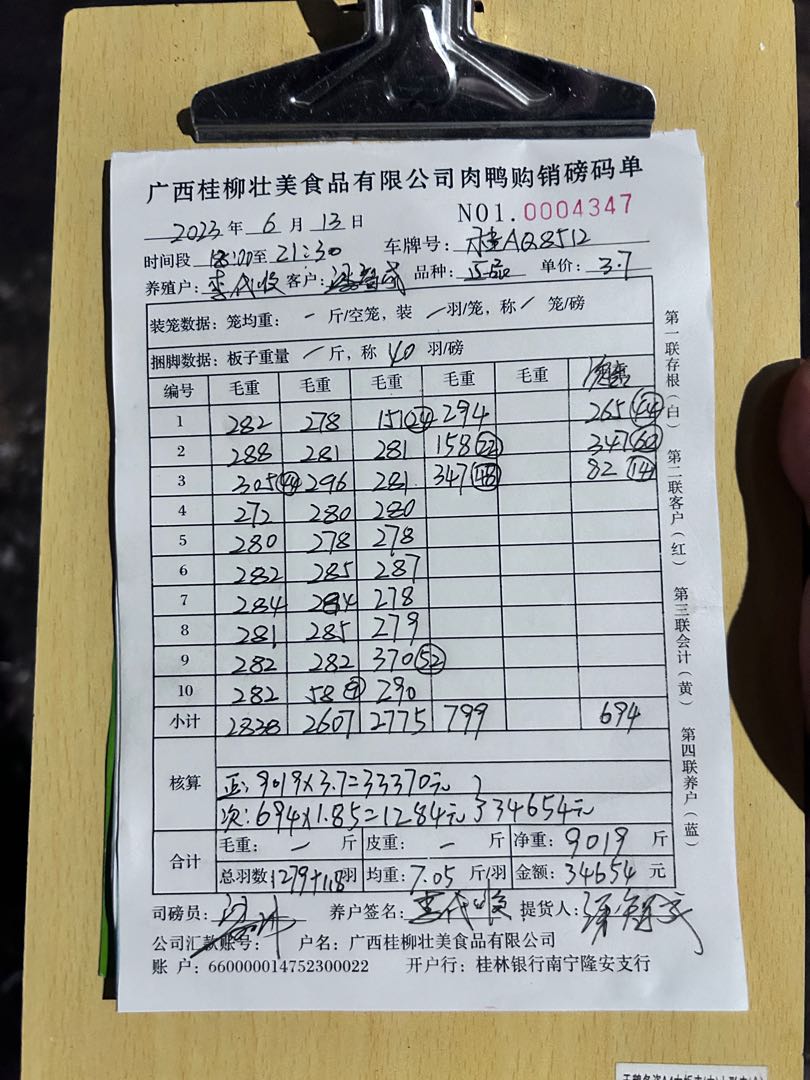 广西桂柳壮美食品有限公司肉鸭购销磅码单
2023 年 6 月 13 日 NO1.0004347
时间段 18:00至 21:30 车牌号: 桂AQ8512
养殖户: 李代收 客户: 品种: 正品 单价: 3.7
装笼数据: 笼均重: - 斤/空笼, 装 / 羽/笼, 称 / 笼/磅
捆脚数据: 板子重量 / 斤, 称 40 羽/磅
编号 毛重 毛重 毛重 毛重 毛重
1 282 278 151 24 294 265 44
2 288 281 281 158 22 347 60
3 305 44 296 281 347 48 82 14
4 272 280 280
5 280 278 278
6 282 285 287
7 284 284 278
8 281 285 279
9 282 282 370 52
10 282 58 290
小计 2838 2607 2775 799 694
核算
正: 9019×3.7=33370元
次: 694×1.85=1284元 34654元
合计
毛重: - 斤 皮重: - 斤 净重: 9019 斤
总羽数 1279+118羽 均重: 7.05 斤/羽 金额: 34654 元
司磅员: 养户签名: 李代收 提货人:
公司汇款账号: 户名: 广西桂柳壮美食品有限公司
账 户: 660000014752300022 开户行: 桂林银行南宁隆安支行
第一联存根(白)
第二联客户(红)
第三联会计(黄)
第四联养户(蓝)